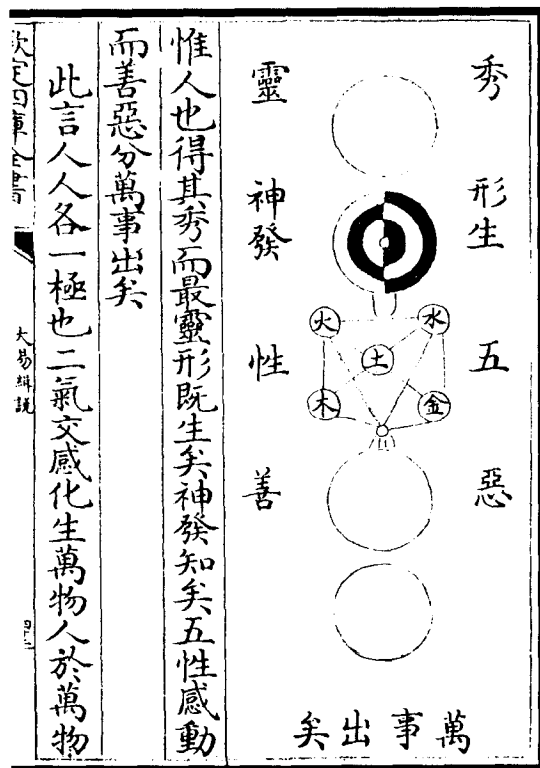 秀
靈
形生
神發
水
火
土
金
木
五
性
惡
善
萬事出矣
惟人也得其秀而最靈形既生矣神發知矣五性感動
而善惡分萬事出矣
此言人人各一極也二氣交感化生萬物人於萬物
欽定四庫全書
大易緝說